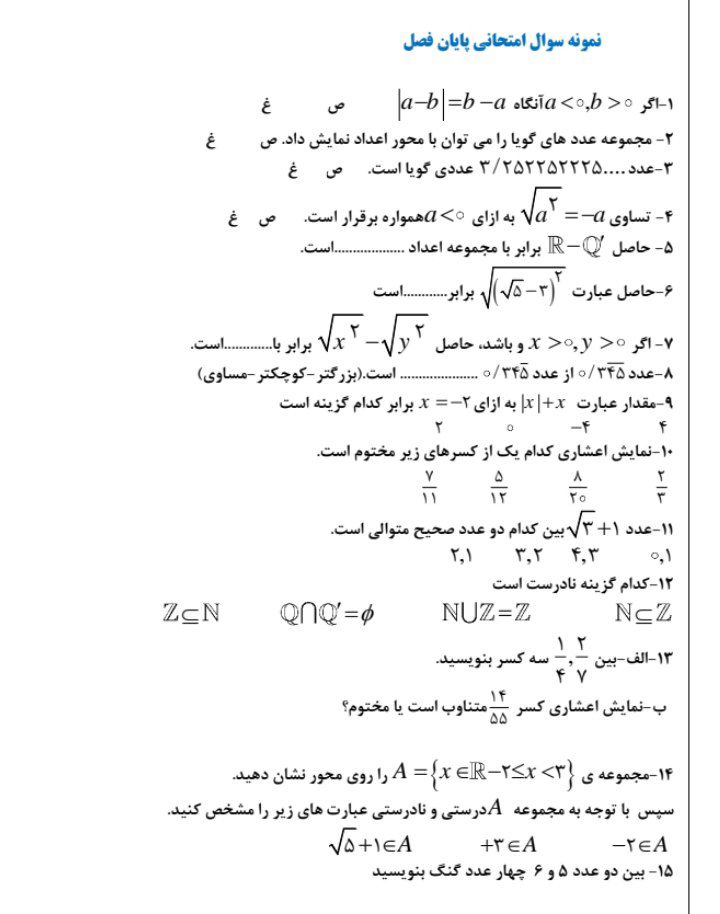 نمونه سوال امتحانی پایان فصل
۱-اگر a<۰,b>۰ آنگاه |a−b|=b−a ص غ
۲- مجموعه عدد های گویا را می توان با محور اعداد نمایش داد. ص غ
۳-عدد ۳/۲۵۲۲۵۲۲۲۵.... عددی گویا است. ص غ
۴- تساوی √a^۲ =−a به ازای a<۰ همواره برقرار است. ص غ
۵- حاصل ℝ−ℚ′ برابر با مجموعه اعداد ..................است.
۶-حاصل عبارت √(√۵−۳)^۲ برابر............است
۷- اگر x>۰,y>۰ و باشد، حاصل √x^۲ −√y^۲ برابر با.............است.
۸-عدد ۰/۳۴̅۵̅ از عدد ۰/۳۴۵̅ ..................... است.(بزرگتر-کوچکتر-مساوی)
۹-مقدار عبارت |x|+x به ازای x=−۲ برابر کدام گزینه است
۴ −۴ ۰ ۲
۱۰-نمایش اعشاری کدام یک از کسرهای زیر مختوم است.
۲/۳ ۸/۲۰ ۵/۱۲ ۷/۱۱
۱۱-عدد √۳+۱ بین کدام دو عدد صحیح متوالی است.
۰,۱ ۴,۳ ۳,۲ ۲,۱
۱۲-کدام گزینه نادرست است
ℕ⊆ℤ ℕ⋃ℤ=ℤ ℚ⋂ℚ′=ϕ ℤ⊆ℕ
۱۳-الف-بین ۱/۴,۲/۷ سه کسر بنویسید.
ب-نمایش اعشاری کسر ۱۴/۵۵ متناوب است یا مختوم؟
۱۴-مجموعه ی A={x∈ℝ−۲≤x<۳} را روی محور نشان دهید.
سپس با توجه به مجموعه A درستی و نادرستی عبارت های زیر را مشخص کنید.
−۲∈A +۳∈A √۵+۱∈A
۱۵- بین دو عدد ۵ و ۶ چهار عدد گنگ بنویسید